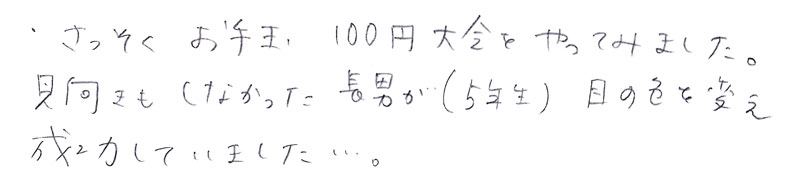 ・さっそく お手玉、100円大会をやってみました。
見向きもしなかった長男が(5年生)目の色を変え
成功していました…。